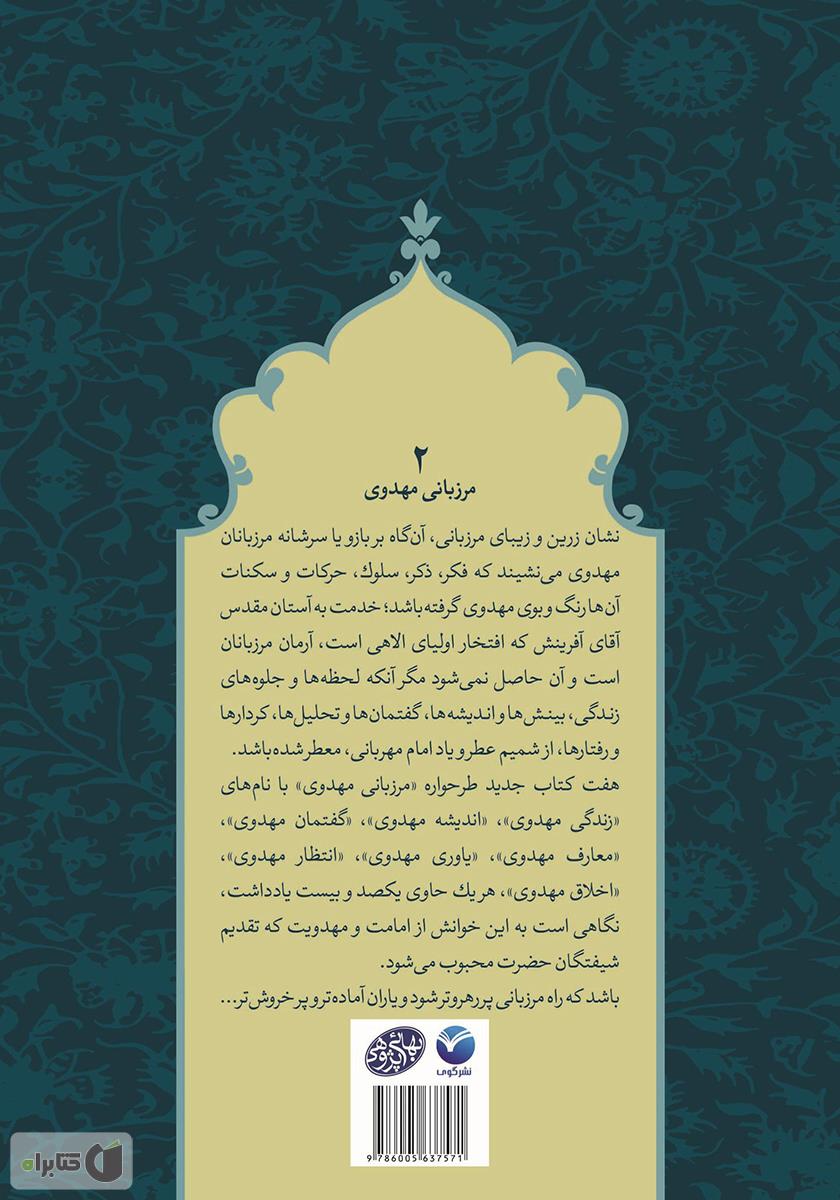 ۲
مرزبانی مهدوی
نشان زرین و زیبای مرزبانی، آن‌گاه بر بازو یا سرشانه مرزبانان
مهدوی می‌نشیند که فکر، ذکر، سلوك، حرکات و سکنات
آن‌ها رنگ و بوی مهدوی گرفته باشد؛ خدمت به آستان مقدس
آقای آفرینش که افتخار اولیای الاهی است، آرمان مرزبانان
است و آن حاصل نمی‌شود مگر آنکه لحظه‌ها و جلوه‌های
زندگی، بینش‌ها و اندیشه‌ها، گفتمان‌ها و تحلیل‌ها، کردارها
و رفتارها، از شمیم عطر و یاد امام مهربانی، معطر شده باشد.
هفت کتاب جدید طرحواره «مرزبانی مهدوی» با نام‌های
«زندگی مهدوی»، «اندیشه مهدوی»، «گفتمان مهدوی»،
«معارف مهدوی»، «یاوری مهدوی»، «انتظار مهدوی»،
«اخلاق مهدوی»، هر یك حاوی یکصد و بیست یادداشت،
نگاهی است به این خوانش از امامت و مهدویت که تقدیم
شیفتگان حضرت محبوب می‌شود.
باشد که راه مرزبانی پر رهروتر شود و یاران آماده‌تر و پر خروش‌تر...
بهائی پژوهی
نشر گوی
9 786005 637571
کتابراه